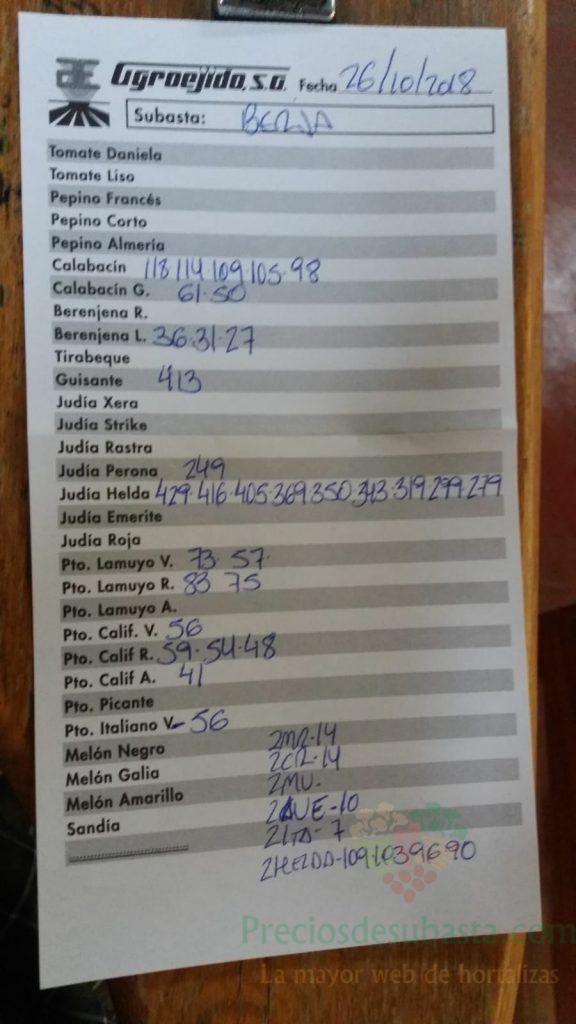 Agroejido, S.A. Fecha 26/10/2018
Subasta: BERJA
Tomate Daniela
Tomate Liso
Pepino Francés
Pepino Corto
Pepino Almería
Calabacín 118 114 109 105 98
Calabacín G. 61 50
Berenjena R.
Berenjena L. 36 31 27
Tirabeque
Guisante 413
Judía Xera
Judía Strike
Judía Rastra
Judía Perona 249
Judía Helda 429 416 405 369 350 343 319 299 279
Judía Emerite
Judía Roja
Pto. Lamuyo V. 73 57
Pto. Lamuyo R. 83 75
Pto. Lamuyo A.
Pto. Calif. V. 56
Pto. Calif R. 59 54 48
Pto. Calif A. 41
Pto. Picante
Pto. Italiano V 56
Melón Negro 2MR-14
Melón Galia 2CR-14
Melón Amarillo 2MU.
Sandía
2LTA-7
2HELDA-109
Preciosdesubasta.com
La mayor web de hortalizas